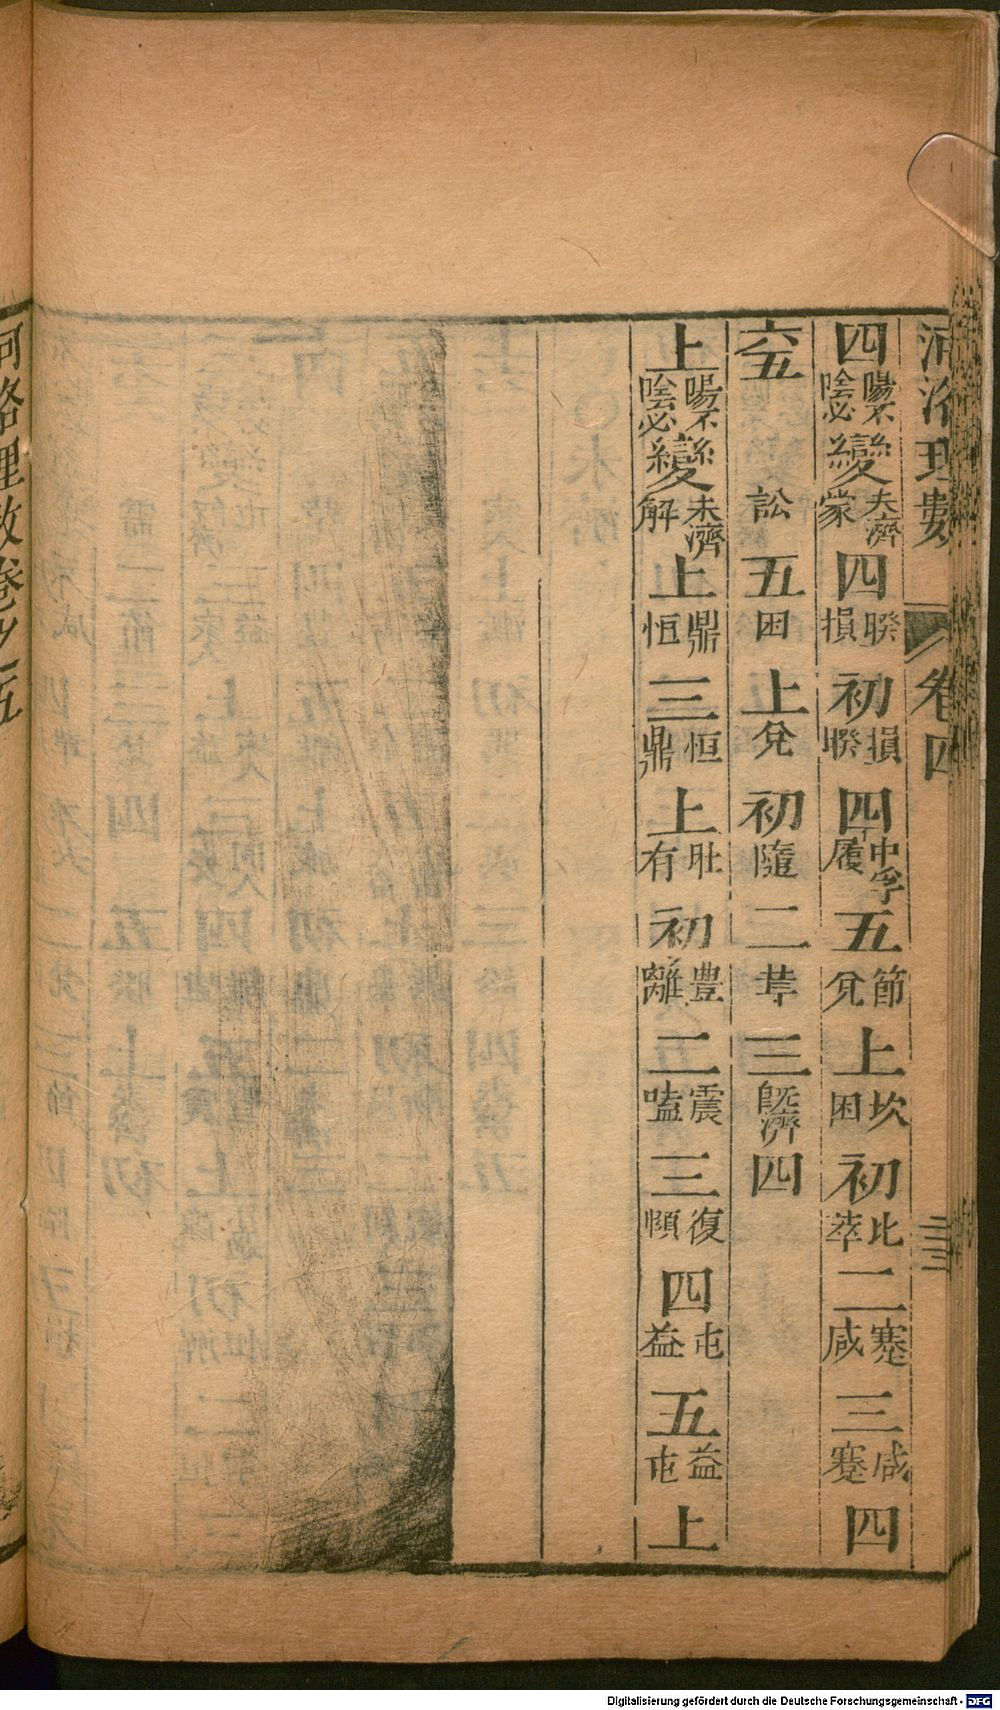 河洛理數 卷四
四陽不陰必變夫濟蒙四睽損初損睽四中孚履五節兌上坎困初比萃二蹇咸三咸蹇四
六五訟五困上兌初隨二萃三旣濟四
上陽不陰必變未濟解上鼎恒三恒鼎上壯有初豊離二震嗑三復頤四屯益五益屯上
河洛理數卷之五
Digitalisierung gefördert durch die Deutsche Forschungsgemeinschaft - DFG